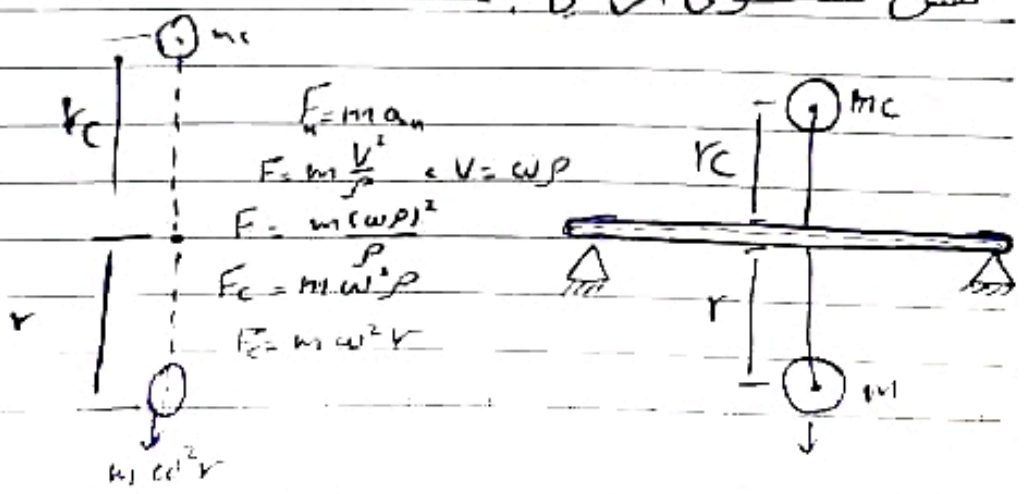 mc
rc
Fₙ = m aₙ
F = m V²/ρ ، V = ωρ
F = m(ωρ)²/ρ
Fc = m ω² ρ
Fc = m ω² r
r
m ω² r
mc
rc
r
m